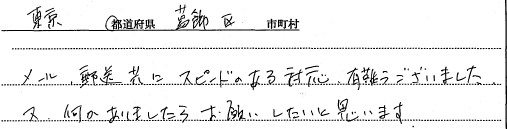 東京 都道府県 葛飾区 市町村
メール、郵送共にスピードのある対応、有難うございました。
又、何かありましたらお願いしたいと思います